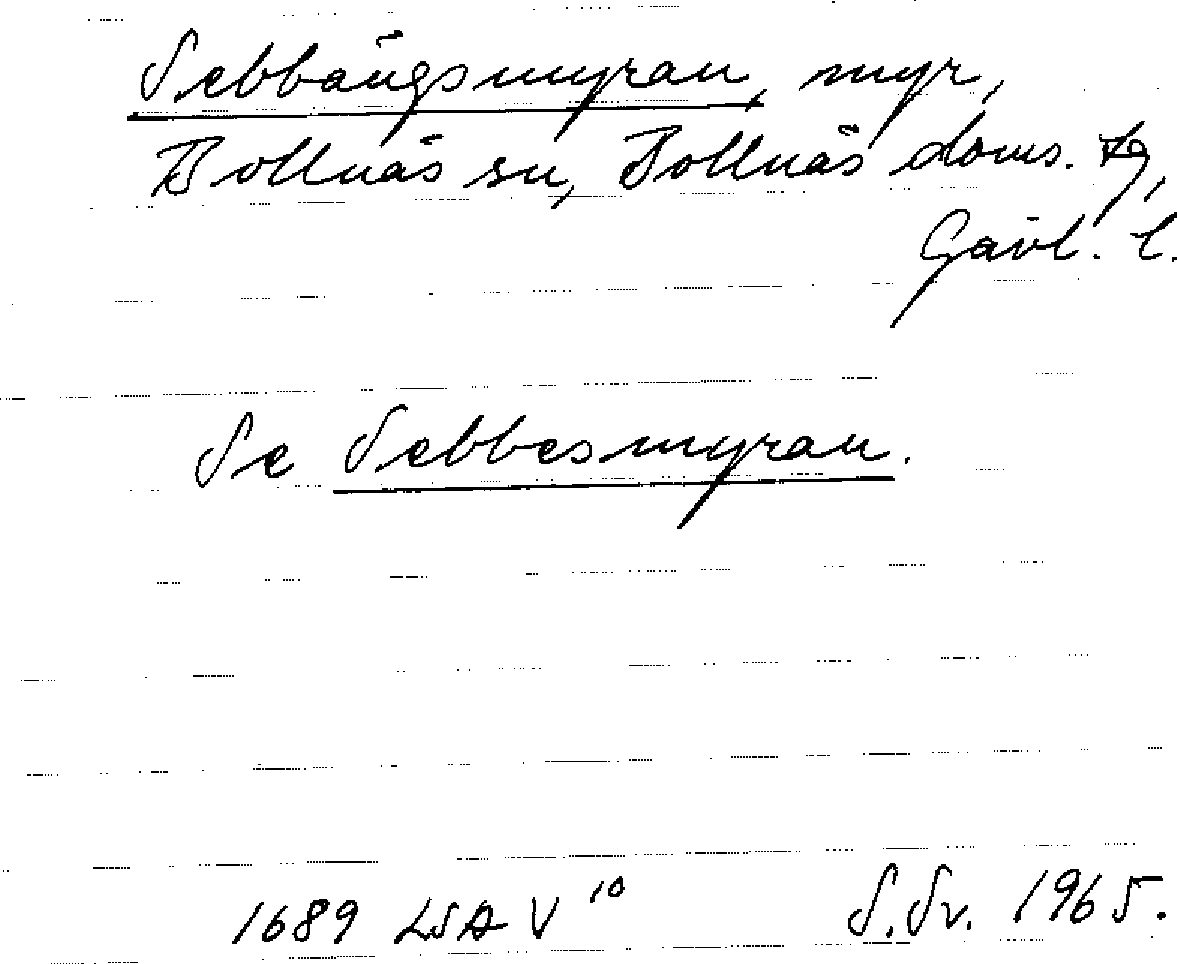 Sebbängsmyran, myr,
Bollnäs sn, Bollnäs doms. tg,
Gävl. l.
Se Sebbesmyran.
1689 LSA V 10 S.Sv. 1965.